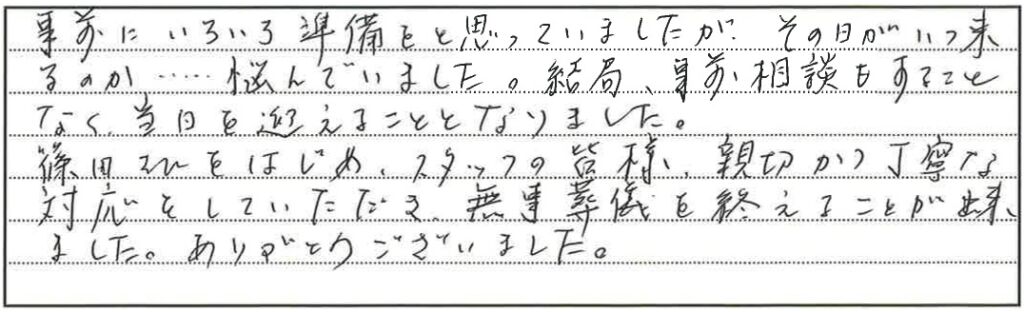 事前にいろいろ準備をと思っていましたが、その日がいつ来
るのか……悩んでいました。結局、事前相談もすること
なく、当日を迎えることとなりました。
篠田さんをはじめ、スタッフの皆様、親切かつ丁寧な
対応をしていただき、無事葬儀を終えることが出来
ました。ありがとうございました。